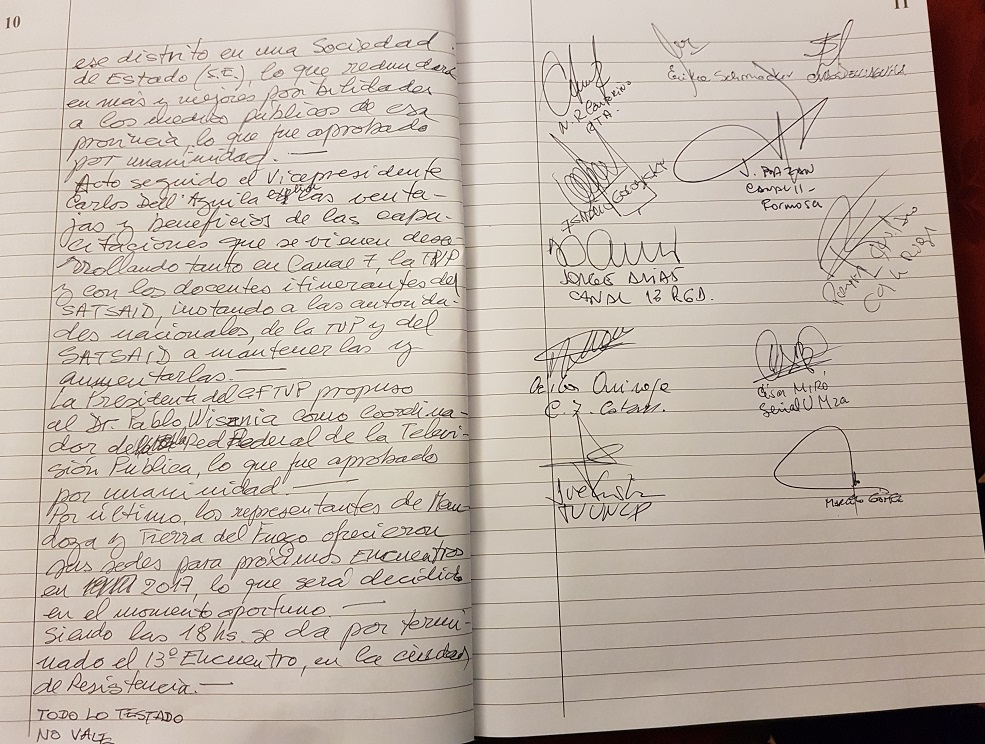 10
ese distrito en una Sociedad
de Estado (S.E.), lo que redundará
en más y mejores posibilidades
a los medios públicos de esa
provincia, lo que fue aprobado
por unanimidad. —
Acto seguido el Vicepresidente
Carlos Dell'Aguila explicó las venta-
jas y beneficios de las capa-
citaciones que se vienen desa
rrollando tanto en Canal 7, la TVP
y con los docentes itinerantes del
SATSAID, instando a las autorida-
des nacionales, de la TVP y del
SATSAID a mantenerlas y
aumentarlas. —
La Presidente del CFTVP propuso
al Dr. Pablo Wisznia como Coordina-
dor de la Red Federal de la Televi-
sión Pública, lo que fue aprobado
por unanimidad. —
Por último, los representantes de Men-
doza y Tierra del Fuego ofrecieron
sus sedes para próximos Encuentros
en 2017, lo que será decidido
en el momento oportuno —
Siendo las 18 hs. se da por termi-
nado el 13º Encuentro, en la ciudad
de Resistencia. —
TODO LO TESTADO
NO VALE
11
Erika Schmacher
J. BAZAN
CANAL 11-
Formosa
JORGE ARIAS
CANAL 13 RGD.
Carlos Quiroga
C. 7.
MIRÓ
Señal U Mza
TVUNCP
MARCELO GOMEZ